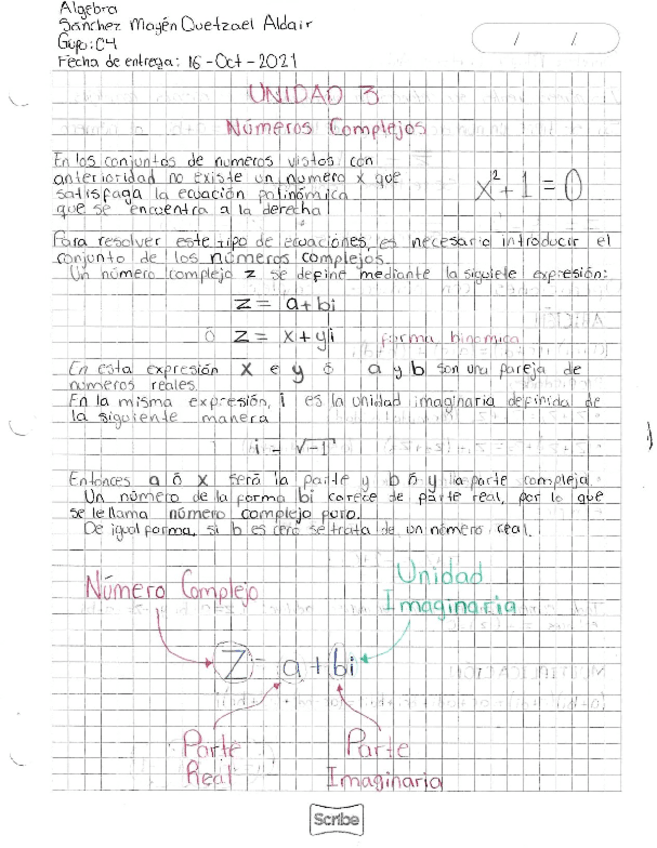 Algebra
Sánchez Mayén Quetzael Aldair
Grupo: C4
Fecha de entrega: 16-Oct-2021
/ /
UNIDAD 3
Números Complejos
En los conjuntos de numeros vistos con
anterioridad no existe un numero x que
satisfaga la ecuación polinómica
que se encuentra a la derecha
x²+1=0
Para resolver este tipo de ecuaciones, es necesario introducir el
conjunto de los números complejos.
Un número complejo z se define mediante la siguiete expresión:
z = a+bi
ó z = x+yi forma binomica
En esta expresión x e y ó a y b son una pareja de
números reales.
En la misma expresión, i es la unidad imaginaria definida de
la siguiente manera
i = √-1
Entonces a ó x será la parte y b ó y la parte compleja.
Un número de la forma bi carece de parte real, por lo que
se le llama número complejo puro.
De igual forma, si b es cero se trata de un número real.
Número Complejo
Unidad
Imaginaria
Z = a+bi
Parte
Real
Parte
Imaginaria
Scribe